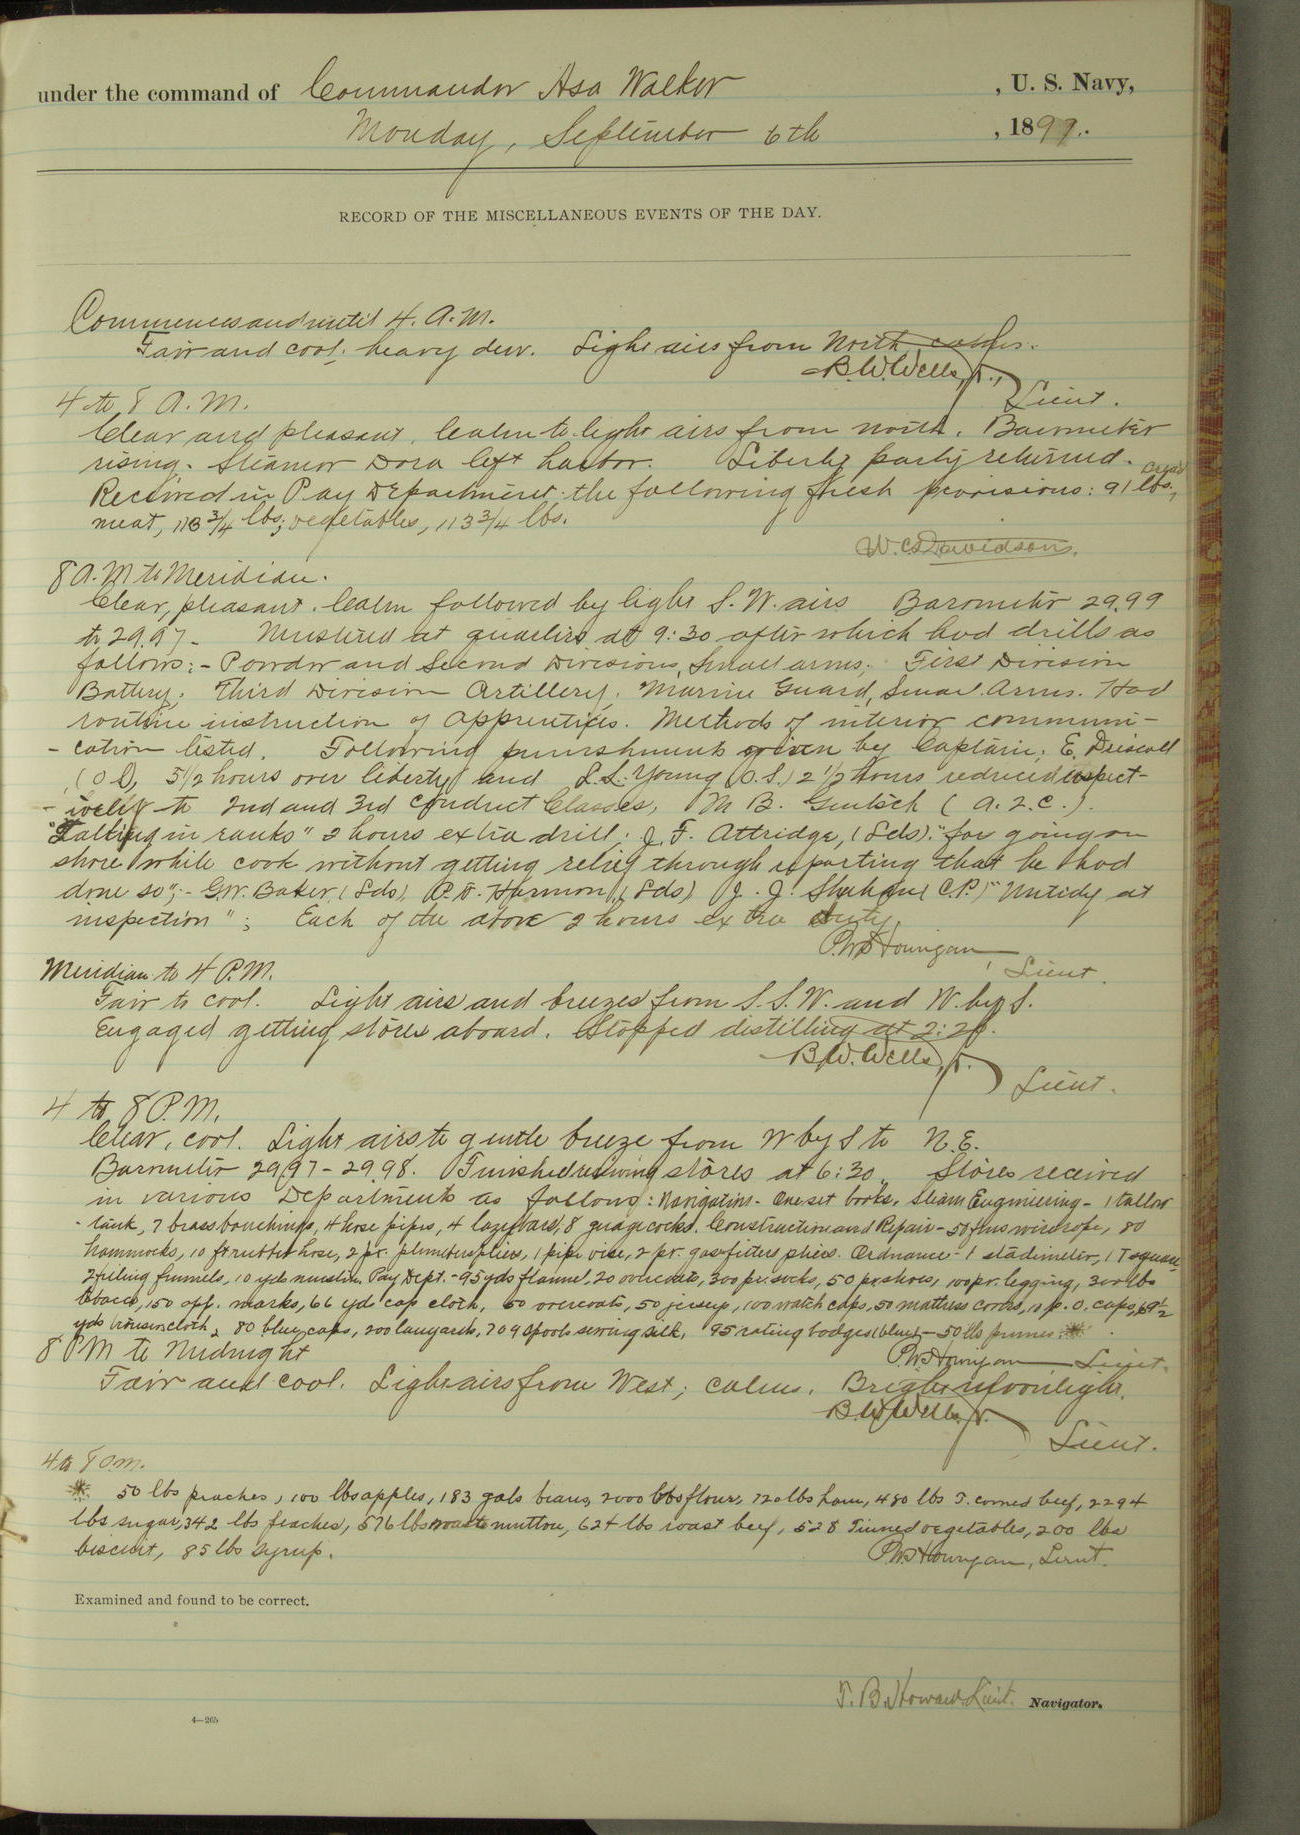 under the command of Commander Asa Walker , U. S. Navy,
Monday, September 6th , 1897.
RECORD OF THE MISCELLANEOUS EVENTS OF THE DAY.
Commences and until 4. A.M.
Fair and cool: heavy dew. Light airs from North calms.
B.W. Wells, Jr., Lieut.
4 to 8 A.M.
Clear and pleasant. Calm to light airs from north. Barometer
rising. Steamer Dora left harbor. Liberty party returned.
Received in Pay Department the following fresh provisions: bread 91 lbs.,
meat, 113 3/4 lbs; vegetables, 113 3/4 lbs.
W. C. Davidson.
8 A.M to Meridian.
Clear, pleasant. Calm followed by light S. W. airs Barometer 29.99
to 29.97- Mustered at quarters at 9:30 after which had drills as
follows:- Powder and Second Divisions, Small arms; First Division
Battery; Third Division Artillery; Marine Guard, Small Arms. Had
routine instruction of apprentices. Methods of interior communi-
-cation tested. Following punishments given by Captain: E. Driscoll
(O.S), 5 1/2 hours over liberty and L. L. Young (O.S.) 2 1/2 hours reduced respect-
-ively to 2nd and 3rd Conduct Classes, M. B. Gentsch (A.2.C.).
"Talking in ranks" 2 hours extra drill; J. F. Attridge, (Lds). "for going on
shore while cook without getting relief through reporting that he had
done so";- G.W. Baker (Lds), P. F. Harmon, (Lds) J. J. Shahan (C.P.) "Untidy at
inspection"; Each of the above 2 hours extra duty.
P.W. Hourigan, Lieut.
Meridian to 4 P.M.
Fair to cool. Light airs and breezes from S.S.W. and W. by S.
Engaged getting stores aboard. Stopped distilling at 2:20.
B.W. Wells, Jr. Lieut.
4 to 8 P.M.
Clear, cool. Light airs to gentle breeze from W by S to N.E.
Barometer 29.97-29.98. Finished receiving stores at 6:30. Stores received
in various Departments as follows: Navigation- One set books. Steam Engineering- 1 tallow
-tank, 7 brass bouchings, 4 hose pipes, 4 lazy bars, 8 guage cocks. Construction and Repair- 50 fms wire rope, 80
hammocks, 10 ft rubber hose, 2 pr. plumbers pliers, 1 pipe vise, 2 pr. gas fitters pliers. Ordnance- 1 stadimeter, 1 T square
2 filling funnels, 10 yds muslin. Pay Dept.- 95 yds flannel, 20 overcoats, 300 pr. socks, 50 pr. shoes, 100 pr. legging, 300 lbs
tobacco, 150 app. marks, 66 yds cap cloth, 50 overcoats, 50 jerseys, 100 watch caps, 50 mattress covers, 10 p. o. caps, 69 1/2
yds trouser cloth, 80 blue caps, 200 lanyards, 709 spools sewing silk, 95 rating badges (blue)- 50 lbs prunes. *
P.W. Hourigan Lieut.
8 PM to Midnight
Fair and cool. Light airs from West; calms. Bright moonlight.
B.W. Wells, Jr. Lieut.
4 to 8 P.M.
* 50 lbs peaches, 100 lbs apples, 183 gals beans, 2000 lbs flour, 720 lbs ham, 480 lbs T. corned beef, 2294
lbs sugar, 342 lbs peaches, 576 lbs roast mutton, 624 lbs roast beef, 528 Tinned vegetables, 200 lbs
biscuit, 85 lbs syrup.
P.W. Hourigan, Lieut.
Examined and found to be correct.
T. B. Howard Lieut. Navigator.
4—265